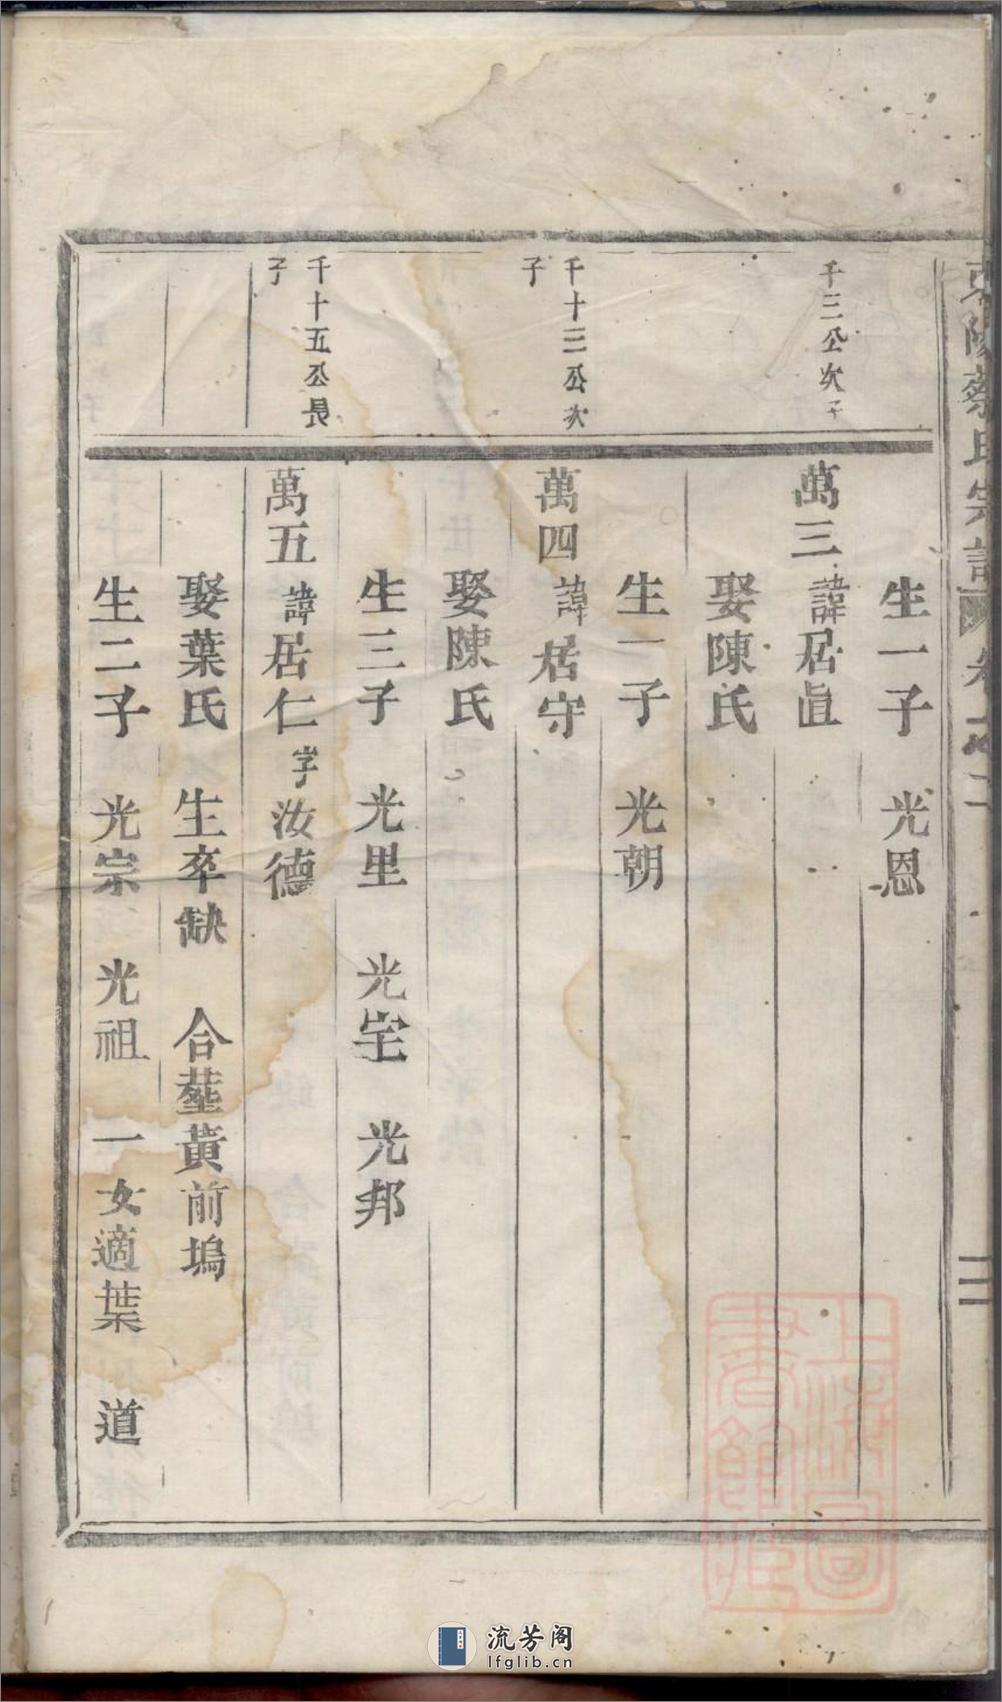 東陽蔡氏宗譜 卷之二
生一子 光恩
千三公次子
萬三 諱居眞
娶陳氏
生一子 光朝
千十三公次
子
萬四 諱居守
娶陳氏
生三子 光里 光宅 光邦
千十五公長
子
萬五 諱居仁 字汝德
娶葉氏 生卒缺 合塟黃前塢
生二子 光宗 光祖 一女適葉 道
上海圖
書館藏
流芳阁
lfglib.cn